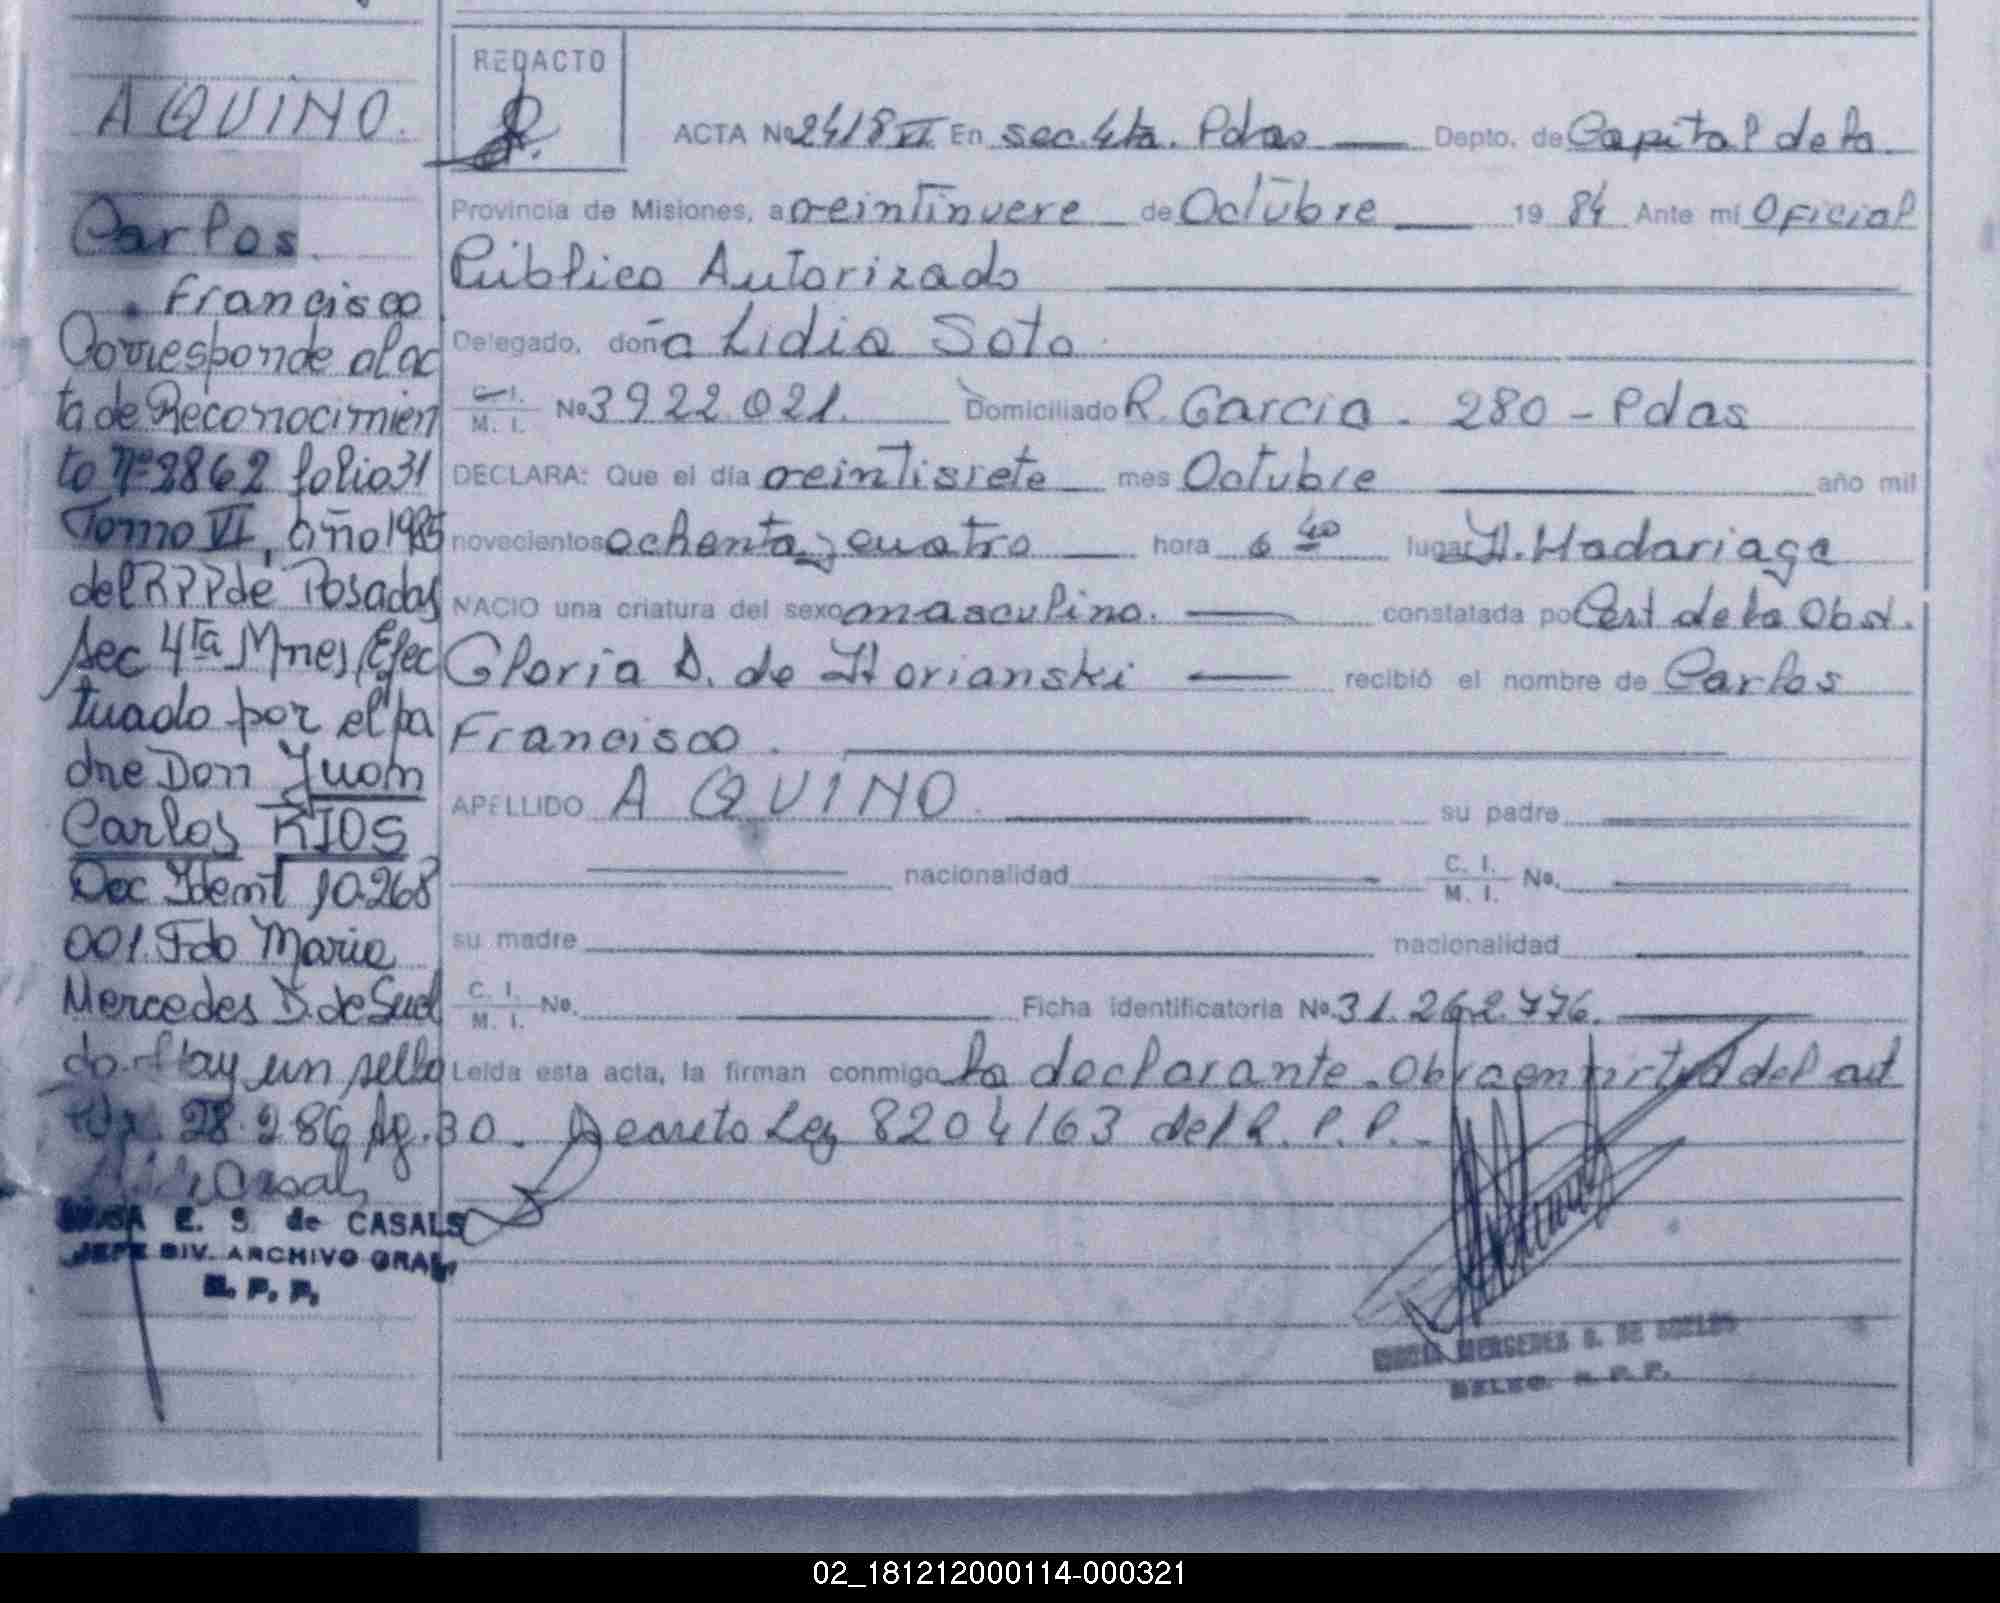 AQUINO.
Carlos
Francisco
Corresponde al ac
ta de Reconocimien
to Nº 2862 folio 31
Tomo VI, año 1985
del R P P de Posadas
Sec 4ta Mnes, Efec
tuado por el pa
dre Don Juan
Carlos RIOS
Doc Ident 10.268
001. Fdo Maria
Mercedes D. de Suel
do. Hay un sello
28.2.86 Ag.
E. S. de CASALS
JEFE DIV. ARCHIVO GRAL.
R. P. P.
REDACTO
ACTA No 2418 VI En sec. 4ta. Pdas Depto. de Capital de la
Provincia de Misiones, a veintinueve de Octubre 19 84 Ante mi Oficial
Público Autorizado
Delegado, doña Lidia Soto
C. I. M. I. No 3922021. Domiciliado R. Garcia. 280 - Pdas
DECLARA: Que el día veintisiete mes Octubre año mil
novecientos ochenta y cuatro hora 6 40 lugar H. Madariaga
NACIO una criatura del sexo masculino. constatada po Cert de la Obst.
Gloria D. de recibió el nombre de Carlos
Francisco.
APELLIDO AQUINO su padre
nacionalidad C. I. M. I. No.
su madre nacionalidad
C. I. M. I. No. Ficha identificatoria No. 31.262.776.
Leida esta acta, la firman conmigo la declarante. Obra en virtud del art
30. Decreto Ley 8204/63 del R. P. P.
MARIA MERCEDES D. DE SUELDO
DELEG. R. P. P.
02_181212000114-000321